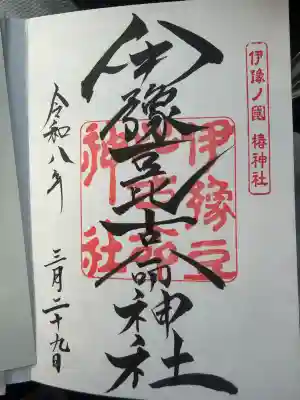 伊豫ノ國 椿神社
伊豫豆比古命神社
伊豫豆
比古命
神社
令和八年
三月二十九日